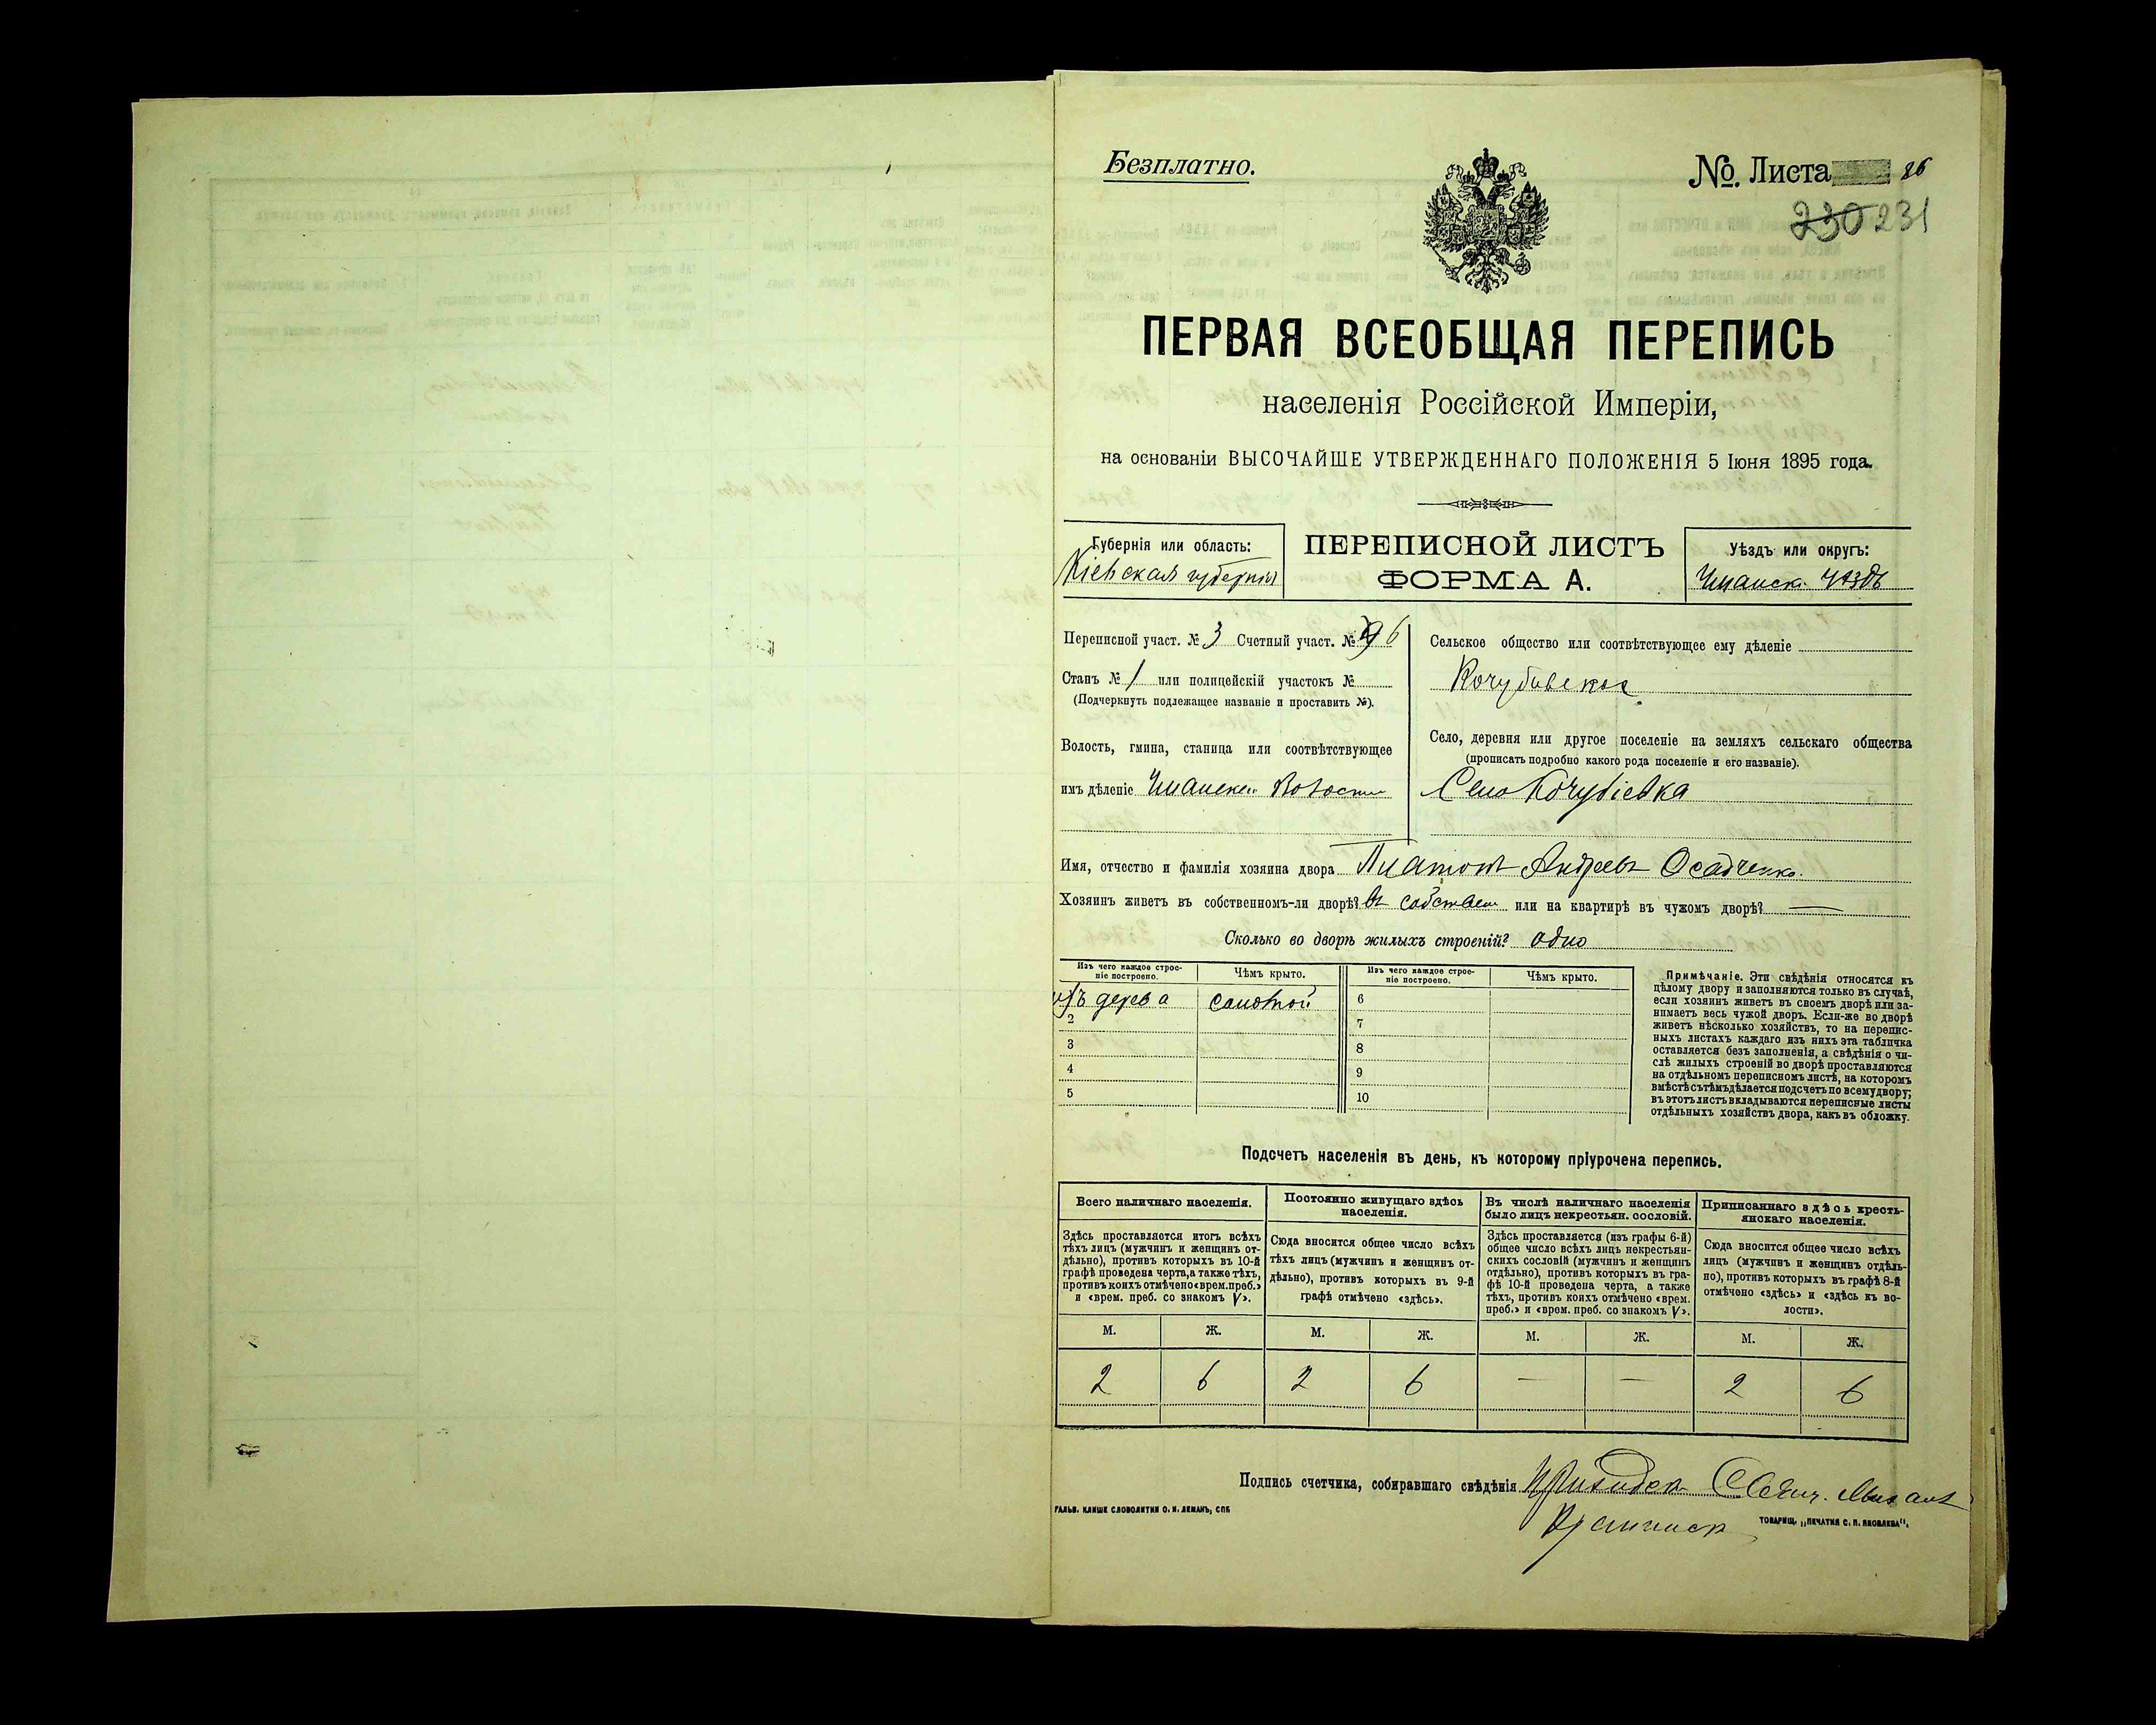 Безплатно.
№. Листа 86
230 231
ПЕРВАЯ ВСЕОБЩАЯ ПЕРЕПИСЬ
населенія Россійской Имперіи,
на основаніи ВЫСОЧАЙШЕ УТВЕРЖДЕННАГО ПОЛОЖЕНІЯ 5 Іюня 1895 года.
Губернія или область:
Кіевская губернія
ПЕРЕПИСНОЙ ЛИСТЪ
ФОРМА А.
Уѣздъ или округъ:
Уманск. Уѣздъ
Переписной участ. № 3 Счетный участ. № 6
Станъ № 1 или полицейскій участокъ №
(Подчеркнуть подлежащее названіе и проставить №).
Волость, гмина, станица или соотвѣтствующее
имъ дѣленіе Уманской Волости
Сельское общество или соотвѣтствующее ему дѣленіе
Кочубивское
Село, деревня или другое поселеніе на земляхъ сельскаго общества
(прописать подробно какого рода поселеніе и его названіе).
Село Кочубіевка
Имя, отчество и фамилія хозяина двора Платонъ Андреевъ Осадченко.
Хозяинъ живетъ въ собственномъ-ли дворѣ? въ собствен или на квартирѣ въ чужомъ дворѣ? —
Сколько во дворѣ жилыхъ строеній? одно
Изъ чего каждое строе-
ніе построено.
Чѣмъ крыто.
Изъ чего каждое строе-
ніе построено.
Чѣмъ крыто.
изъ дерева соломой
2
3
4
5
6
7
8
9
10
Примѣчаніе. Эти свѣдѣнія относятся къ
цѣлому двору и заполняются только въ случаѣ,
если хозяинъ живетъ въ своемъ дворѣ или за-
нимаетъ весь чужой дворъ. Если-же во дворѣ
живетъ нѣсколько хозяйствъ, то на перепис-
ныхъ листахъ каждаго изъ нихъ эта табличка
оставляется безъ заполненія, а свѣдѣнія о чи-
слѣ жилыхъ строеній во дворѣ проставляются
на отдѣльномъ переписномъ листѣ, на которомъ
вмѣстѣ съ тѣмъ дѣлается подсчетъ по всему двору;
въ этотъ листъ вкладываются переписные листы
отдѣльныхъ хозяйствъ двора, какъ въ обложку.
Подсчетъ населенія въ день, къ которому пріурочена перепись.
Всего наличнаго населенія.
Здѣсь проставляется итогъ всѣхъ
тѣхъ лицъ (мужчинъ и женщинъ от-
дѣльно), противъ которыхъ въ 10-й
графѣ проведена черта, а также тѣхъ,
противъ коихъ отмѣчено «врем. преб.»
и «врем. преб. со знакомъ V».
Постоянно живущаго здѣсь
населенія.
Сюда вносится общее число всѣхъ
тѣхъ лицъ (мужчинъ и женщинъ от-
дѣльно), противъ которыхъ въ 9-й
графѣ отмѣчено «здѣсь».
Въ числѣ наличнаго населенія
было лицъ некрестьян. сословій.
Здѣсь проставляется (изъ графы 6-й)
общее число всѣхъ лицъ некрестьян-
скихъ сословій (мужчинъ и женщинъ
отдѣльно), противъ которыхъ въ гра-
фѣ 10-й проведена черта, а также
тѣхъ, противъ коихъ отмѣчено «врем.
преб.» и «врем. преб. со знакомъ V».
Приписаннаго здѣсь кресть-
янскаго населенія.
Сюда вносится общее число всѣхъ
лицъ (мужчинъ и женщинъ отдѣль-
но), противъ которыхъ въ графѣ 8-й
отмѣчено «здѣсь» и «здѣсь къ во-
лости».
М. Ж. М. Ж. М. Ж. М. Ж.
2 6 2 6 — — 2 6
Подпись счетчика, собиравшаго свѣдѣнія
ГАЛЬВ. КЛИШЕ СЛОВОЛИТНИ О. И. ЛЕМАНЪ, СПБ
ТОВАРИЩ. „ПЕЧАТНЯ С. П. ЯКОВЛЕВА".